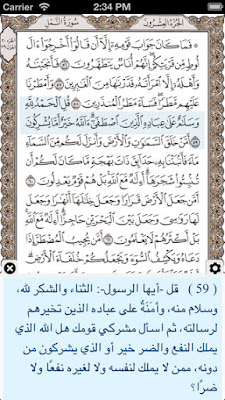 Carrier 2:34 PM
الجزء العشرون سورة النمل
۞ فَمَا كَانَ جَوَابَ قَوْمِهِۦٓ إِلَّآ أَن قَالُوٓا۟ أَخْرِجُوٓا۟ ءَالَ
لُوطٍ مِّن قَرْيَتِكُمْ إِنَّهُمْ أُنَاسٌ يَتَطَهَّرُونَ ٥٦ فَأَنجَيْنَٰهُ
وَأَهْلَهُۥٓ إِلَّا ٱمْرَأَتَهُۥ قَدَّرْنَٰهَا مِنَ ٱلْغَٰبِرِينَ ٥٧ وَأَمْطَرْنَا
عَلَيْهِم مَّطَرًا فَسَآءَ مَطَرُ ٱلْمُنذَرِينَ ٥٨ قُلِ ٱلْحَمْدُ لِلَّهِ
وَسَلَٰمٌ عَلَىٰ عِبَادِهِ ٱلَّذِينَ ٱصْطَفَىٰٓ ءَآللَّهُ خَيْرٌ أَمَّا يُشْرِكُونَ ٥٩
أَمَّنْ خَلَقَ ٱلسَّمَٰوَٰتِ وَٱلْأَرْضَ وَأَنزَلَ لَكُم مِّنَ ٱلسَّمَآءِ
مَآءً فَأَنۢبَتْنَا بِهِۦ حَدَآئِقَ ذَاتَ بَهْجَةٍ مَّا كَانَ لَكُمْ أَن
تُنۢبِتُوا۟ شَجَرَهَآ أَءِلَٰهٌ مَّعَ ٱللَّهِ بَلْ هُمْ قَوْمٌ يَعْدِلُونَ ٦٠
أَمَّن جَعَلَ ٱلْأَرْضَ قَرَارًا وَجَعَلَ خِلَٰلَهَآ أَنْهَٰرًا وَجَعَلَ
لَهَا رَوَٰسِىَ وَجَعَلَ بَيْنَ ٱلْبَحْرَيْنِ حَاجِزًا أَءِلَٰهٌ مَّعَ ٱللَّهِ
بَلْ أَكْثَرُهُمْ لَا يَعْلَمُونَ ٦١ أَمَّن يُجِيبُ ٱلْمُضْطَرَّ إِذَا
دَعَاهُ وَيَكْشِفُ ٱلسُّوٓءَ وَيَجْعَلُكُمْ خُلَفَآءَ ٱلْأَرْضِ
( 59 ) قل -أيها الرسول-: الثناء والشكر لله،
وسلام منه، وأَمَنَةٌ على عباده الذين تخيرهم
لرسالته، ثم اسأل مشركي قومك هل الله الذي
يملك النفع والضر خير أو الذي يشركون من
دونه، ممن لا يملك لنفسه ولا لغيره نفعًا ولا
ضرًا؟